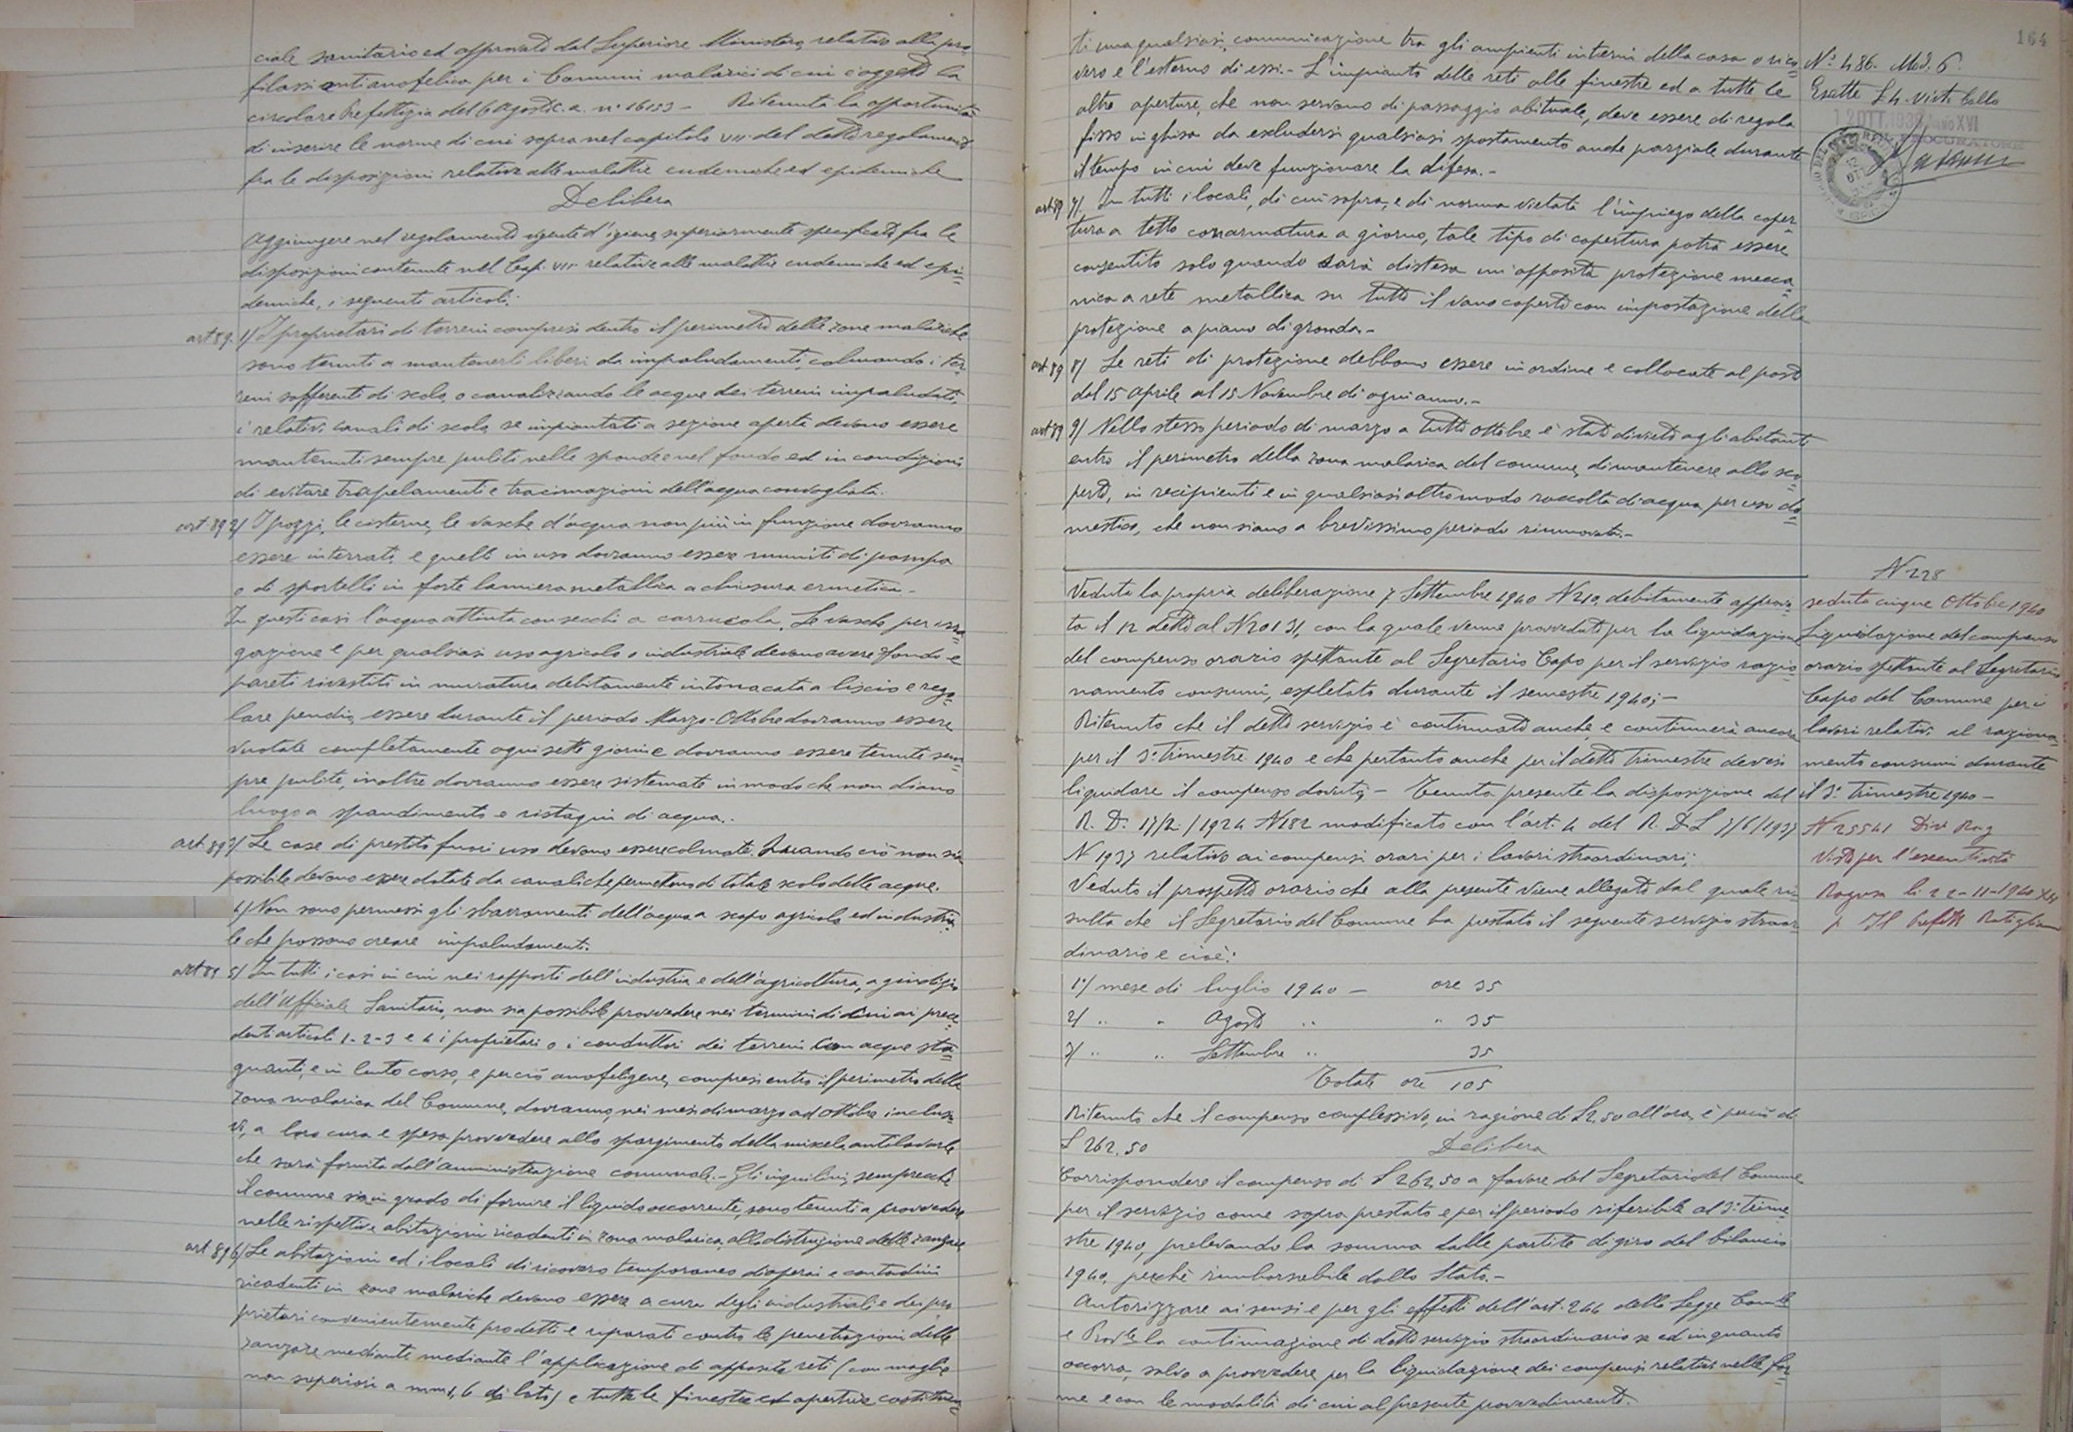 ciale sanitario ed approvato dal Superiore Ministero, relativo alla pro-
filassi antianofelica per i Comuni malarici di cui è oggetto la
circolare Prefettizia del 6 Agosto c. a. n° 16133 - Ritenuta la opportunità
di inserire le norme di cui sopra nel capitolo VII del detto regolamento
fra le disposizioni relative alle malattie endemiche ed epidemiche
Delibera
Aggiungere nel regolamento vigente d'igiene, superiormente specificato, fra le
disposizioni contenute nel Cap. VII relative alle malattie endemiche ed epi=
demiche, i seguenti articoli:
art 89. 1/ I proprietari di terreni compresi dentro il perimetro delle zone malariche
sono tenuti a mantenerli liberi da impaludamenti, colmando i ter-
reni sofferenti di scolo, o canalizzando le acque dei terreni impaludati,
i relativi canali di scolo, se impiantati a sezione aperta devono essere
mantenuti sempre puliti nelle sponde e nel fondo ed in condizioni
di evitare trapelamenti e tracimazioni dell'acqua convogliata.
art 89 2/ I pozzi, le cisterne, le vasche d'acqua non più in funzione dovranno
essere interrati, e quelli in uso dovranno essere muniti di pompa
o di sportelli in forte lamiera metallica a chiusura ermetica.-
In questi casi l'acqua attinta con secchi a carrucola. Le vasche per irri=
gazione e per qualsiasi uso agricolo o industriale devono avere fondo e
pareti rivestiti in muratura debitamente intonacata a liscio e rego=
lare pendio, essere durante il periodo Marzo-Ottobre dovranno essere
vuotate completamente ogni sette giorni e dovranno essere tenute sem=
pre pulite, inoltre dovranno essere sistemate in modo che non diano
luogo a spandimento e ristagni di acqua..
art 89 3/ Le case di prestito fuori uso devono essere colmate. Quando ciò non sia
possibile devono essere dotate da canali che permettono di totale scolo delle acque.
4/ Non sono permessi gli sbarramenti dell'acqua a scopo agricolo ed industria
le che possono creare impaludamenti.
art 89 5/ In tutti i casi in cui nei rapporti dell'industria e dell'agricoltura, a giudizio
dell'Ufficiale Sanitario, non sia possibile provvedere nei termini di cui ai prece=
denti articoli 1-2-3 e 4 i proprietari o i conduttori dei terreni con acque sta=
gnanti, e in lento corso, e perciò anofeligene, compresi entro il perimetro della
zona malarica del Comune, dovranno, nei mesi di marzo ad ottobre inclusi=
vi, a loro cura e spesa provvedere allo spargimento della miscela antilarvale
che sarà fornita dall'Amministrazione comunale.- Gli inquilini, semprecchè
il comune sia in grado di fornire il liquido occorrente, sono tenuti a provvedere,
nelle rispettive abitazioni ricadenti in zona malarica, alla distruzione delle zanzare
art 89 6/ Le abitazioni ed i locali di ricovero temporaneo di operai e contadini
ricadenti in zone malariche devono essere a cura degli industriali e dei pro
prietari convenientemente protetti e riparati contro le penetrazioni delle
zanzare mediante mediante l'applicazione di apposite reti (con maglie
non superiori a mm 1,6 di lato) a tutte le finestre ed aperture costituen=
164
ti una qualsiasi comunicazione tra gli ampienti interni della casa o rico=
vero e l'esterno di essi.- L'impianto delle reti alle finestre ed a tutte le
altre aperture, che non servono di passaggio abituale, deve essere di regola
fisso in ghisa da escludersi qualsiasi spostamento anche parziale durante
il tempo in cui deve funzionare la difesa.-
art 89 7/ In tutti i locali, di cui sopra, e di norma vietato l'impiego della coper=
tura a tetto con armatura a giorno, tale tipo di copertura potrà essere
consentito solo quando sarà distesa un'apposita protezione mecca=
nica a rete metallica su tutto il vano coperto con impostazione della
protezione a piano di gronda.-
art 89 8/ Le reti di protezione debbono essere in ordine e collocate al posto
dal 15 Aprile al 15 Novembre di ogni anno.-
art 89 9/ Nello stesso periodo di marzo a tutto ottobre è stato divieto agli abitanti
entro il perimetro della zona malarica del comune, di mantenere allo sco=
perto, in recipienti e in qualsiasi altro modo raccolta di acqua per uso do=
mestico, che non siano a brevissimo periodo rinnovate.-
N° 486. Mod. 6
Esatte L 4.
12 OTT. 1938 Anno XVI
PROCURATORE
Veduta la propria deliberazione 7 Settembre 1940 N 210, debitamente approva=
ta il 12 detto al N 20131, con la quale venne provveduto per la liquidazione
del compenso orario spettante al Segretario Capo per il servizio razio
namento consumi, espletato durante il semestre 1940;-
Ritenuto che il detto servizio è continuato anche e continuerà ancora
per il 3° trimestre 1940 e che pertanto anche per il detto trimestre devesi
liquidare il compenso dovuto;- Tenuta presente la disposizione del
R. D. 17/2/1924 N 182 modificato con l'art. 4 del R. D L 7/6/1937
N 1937 relativo ai compensi orari per i lavori straordinari;
Veduto il prospetto orario che alla presente viene allegato dal quale ri=
sulta che il Segretario del Comune ha prestato il seguente servizio straor=
dinario e cioè:
1°/ mese di luglio 1940 - ore 35
2/ " " Agosto " " 35
3/ " " Settembre " 35
Totale ore 105
Ritenuto che il compenso complessivo, in ragione di L 2,50 all'ora, è perciò di
L 262.50 Delibera
Corrispondere il compenso di L 262,50 a favore del Segretario del Comune
per il servizio come sopra prestato e per il periodo riferibile al 3° trime=
stre 1940, prelevando la somma dalle partite di giro del bilancio
1940, perchè rimborsabile dallo Stato.-
Autorizzare ai sensi e per gli effetti dell'art. 244 della Legge Com.le
e Prov.le la continuazione di detto servizio straordinario se ed in quanto
occorra, salvo a provvedere per la liquidazione dei compensi relativi nelle for=
me e con le modalità di cui al presente provvedimento.
N 228
seduta cinque Ottobre 1940
Liquidazione del compenso
orario spettante al Segretario
Capo del Comune per i
lavori relativi al raziona-
mento consumi durante
il 3° trimestre 1940 -
N 25541 Div. Rag
Visto per l'esecutività
Ragusa li 22-11-1940 XIX
p. Il Prefetto